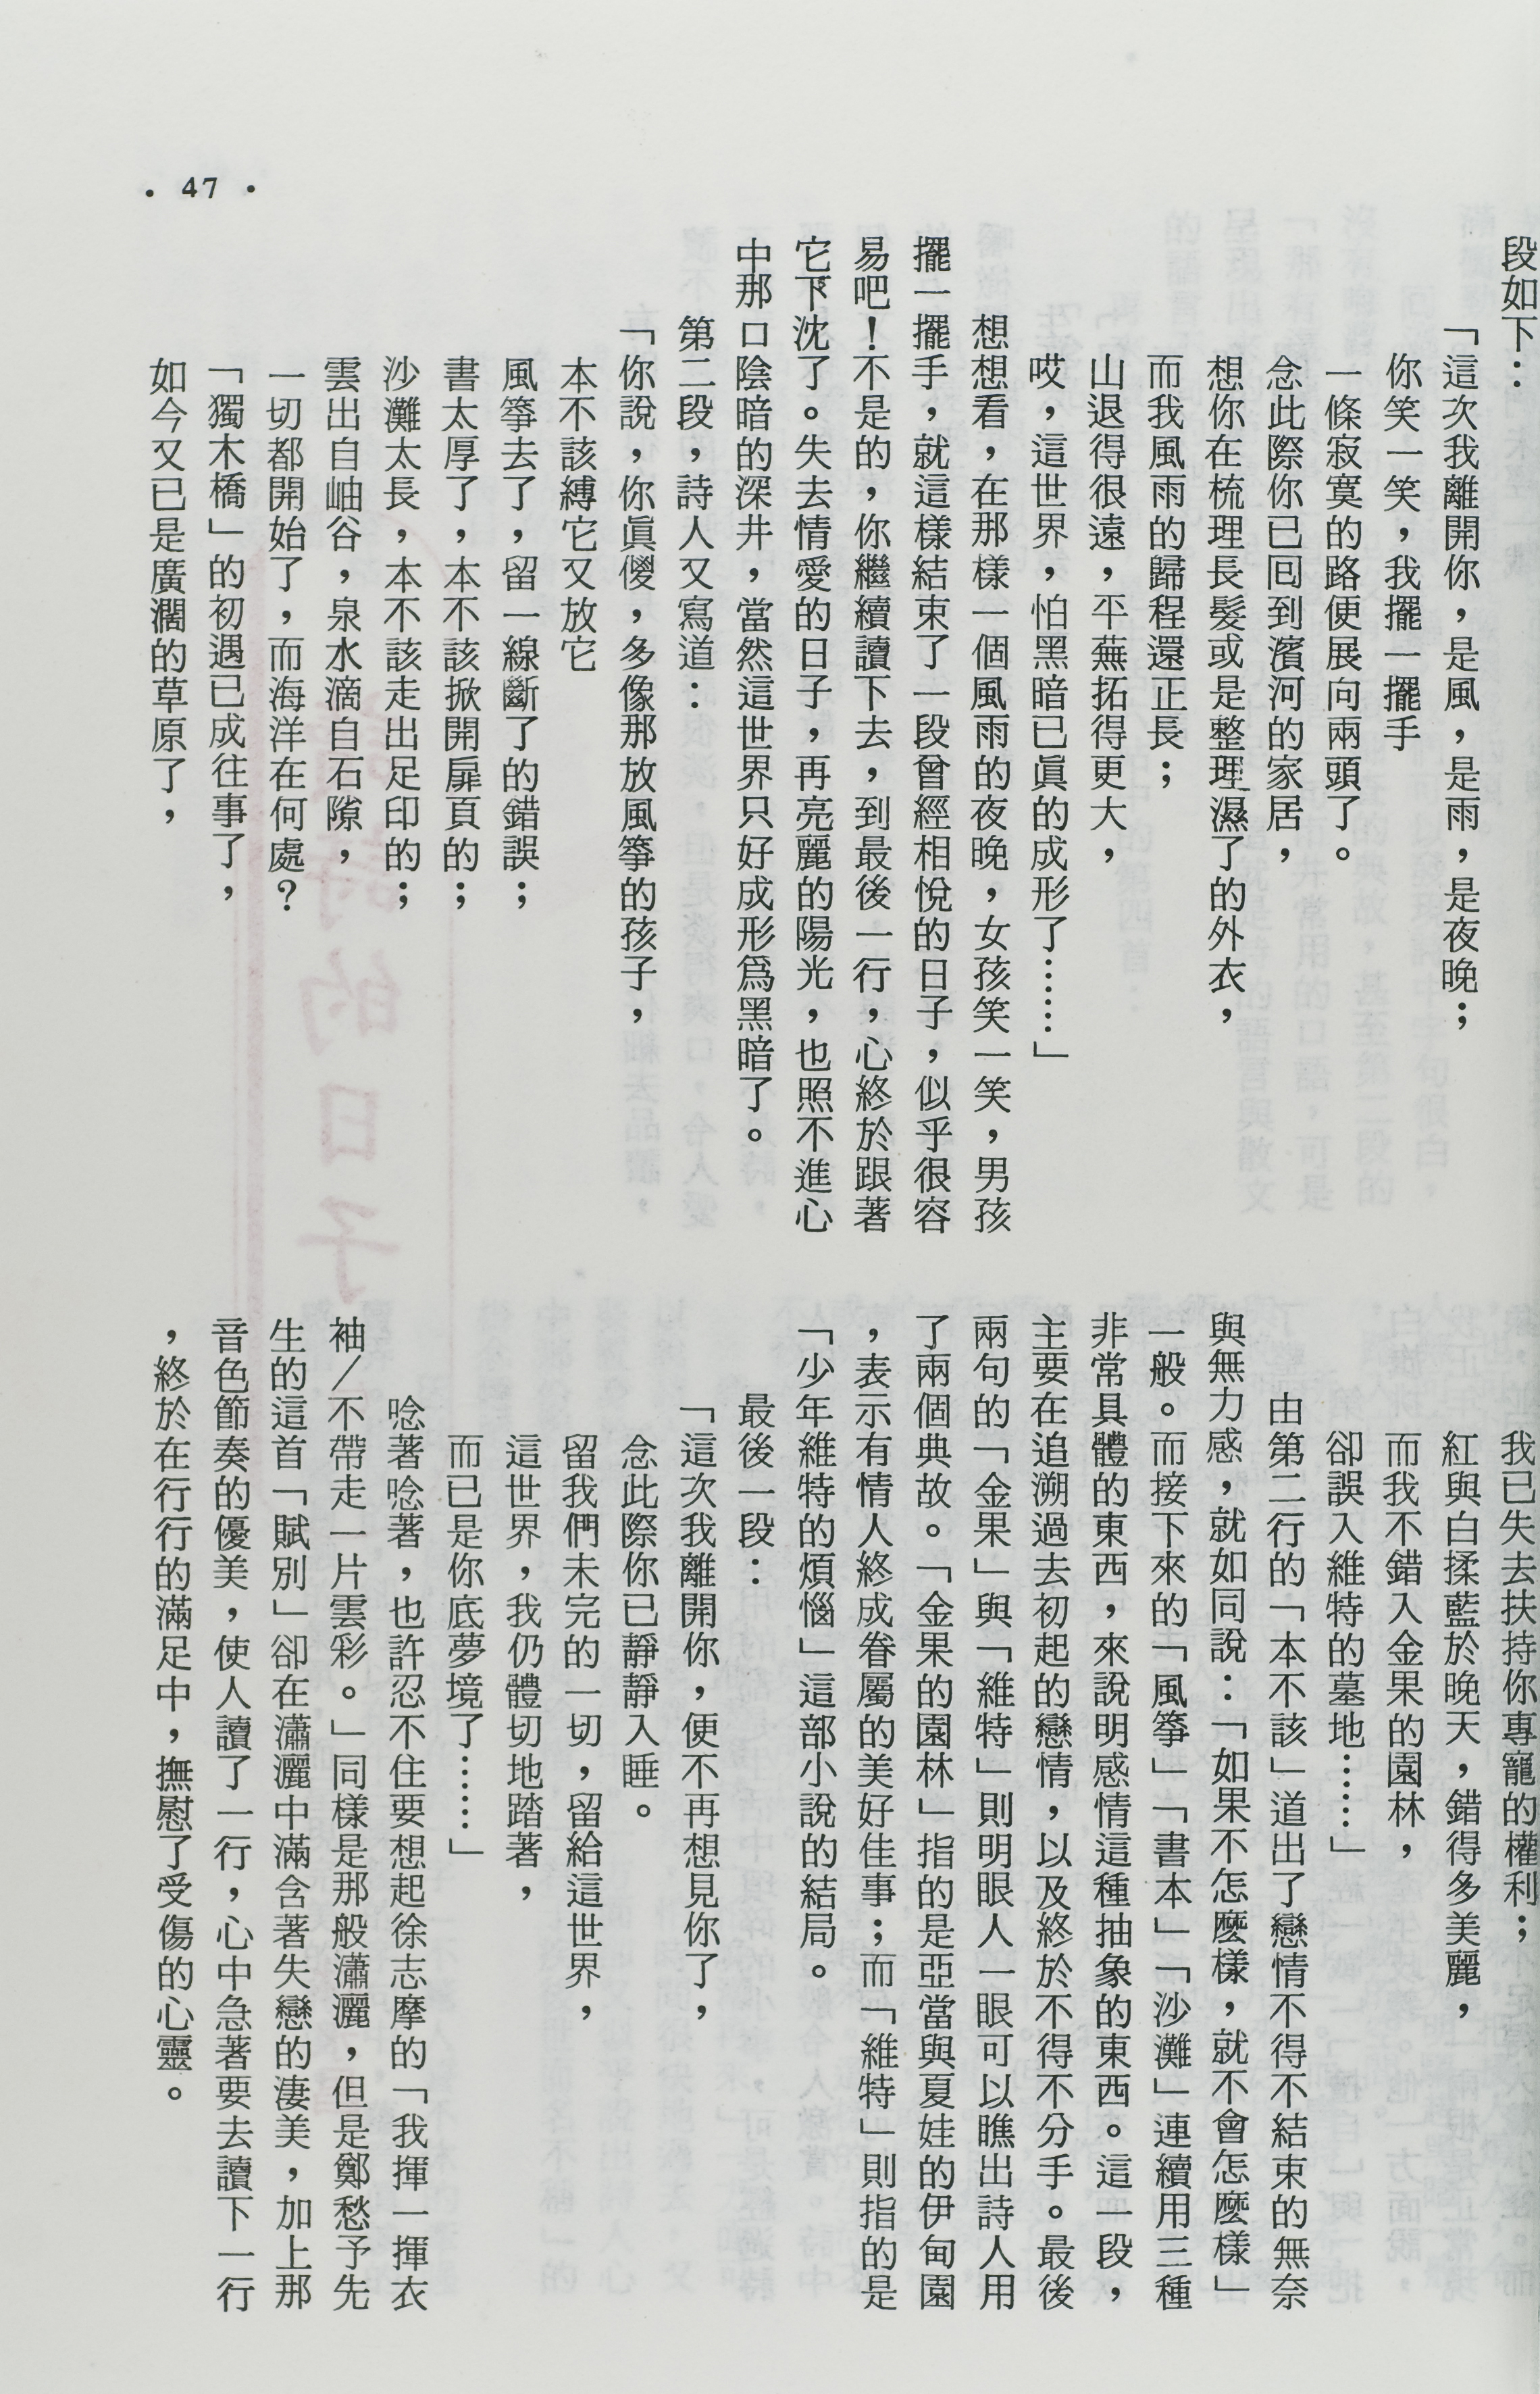 段如下：
「這次我離開你，是風，是雨，是夜晚；
你笑一笑，我擺一擺手
一條寂寞的路便展向兩頭了。
念此際你已回到濱河的家居，
想你在梳理長髮或是整理濕了的外衣，
而我風雨的歸程還正長；
山退得很遠，平蕪拓得更大，
哎，這世界，怕黑暗已眞的成形了……」
想想看，在那樣一個風雨的夜晚，女孩笑一笑，男孩
擺一擺手，就這樣結束了一段曾經相悅的日子，似乎很容
易吧！不是的，你繼續讀下去，到最後一行，心終於跟著
它下沈了。失去情愛的日子，再亮麗的陽光，也照不進心
中那口陰暗的深井，當然這世界只好成形爲黑暗了。
第二段，詩人又寫道：
「你說，你眞傻，多像那放風箏的孩子，
本不該縛它又放它
風箏去了，留一線斷了的錯誤；
書太厚了，本不該掀開扉頁的；
沙灘太長，本不該走出足印的；
雲出自岫谷，泉水滴自石隙，
一切都開始了，而海洋在何處？
「獨木橋」的初遇已成往事了，
如今又已是廣濶的草原了，
我已失去扶持你專寵的權利；
紅與白揉藍於晚天，錯得多美麗，
而我不錯入金果的園林，
卻誤入維特的墓地……」
由第二行的「本不該」道出了戀情不得不結束的無奈
與無力感，就如同說：「如果不怎麼樣，就不會怎麼樣」
一般。而接下來的「風箏」「書本」「沙灘」連續用三種
非常具體的東西，來說明感情這種抽象的東西。這一段，
主要在追溯過去初起的戀情，以及終於不得不分手。最後
兩句的「金果」與「維特」則明眼人一眼可以瞧出詩人用
了兩個典故。「金果的園林」指的是亞當與夏娃的伊甸園
，表示有情人終成眷屬的美好佳事；而「維特」則指的是
「少年維特的煩惱」這部小說的結局。
最後一段：
「這次我離開你，便不再想見你了，
念此際你已靜靜入睡。
留我們未完的一切，留給這世界，
這世界，我仍體切地踏著，
而已是你底夢境了……」
唸著唸著，也許忍不住要想起徐志摩的「我揮一揮衣
袖／不帶走一片雲彩。」同樣是那般瀟灑，但是鄭愁予先
生的這首「賦別」卻在瀟灑中滿含著失戀的淒美，加上那
音色節奏的優美，使人讀了一行，心中急著要去讀下一行
，終於在行行的滿足中，撫慰了受傷的心靈。
• 47 •